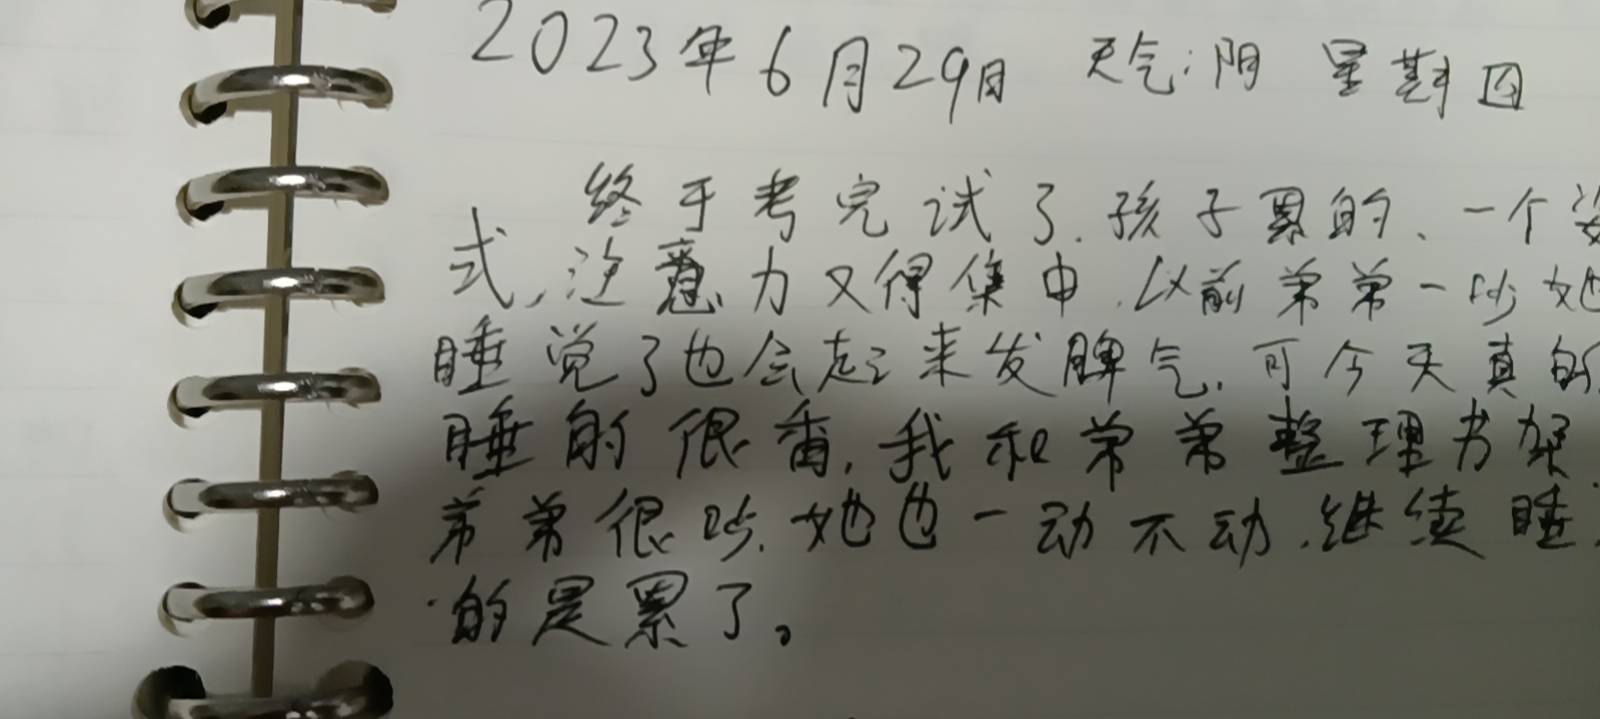 2023年6月29日 天气:阴 星期四
终于考完试了.孩子累的、一个姿
式,注意力又得集中.以前弟弟一吵她
睡觉了也会起来发脾气.可今天真的
睡的很香.我和弟弟整理书架.
弟弟很吵.她也一动不动.继续睡.
的是累了。